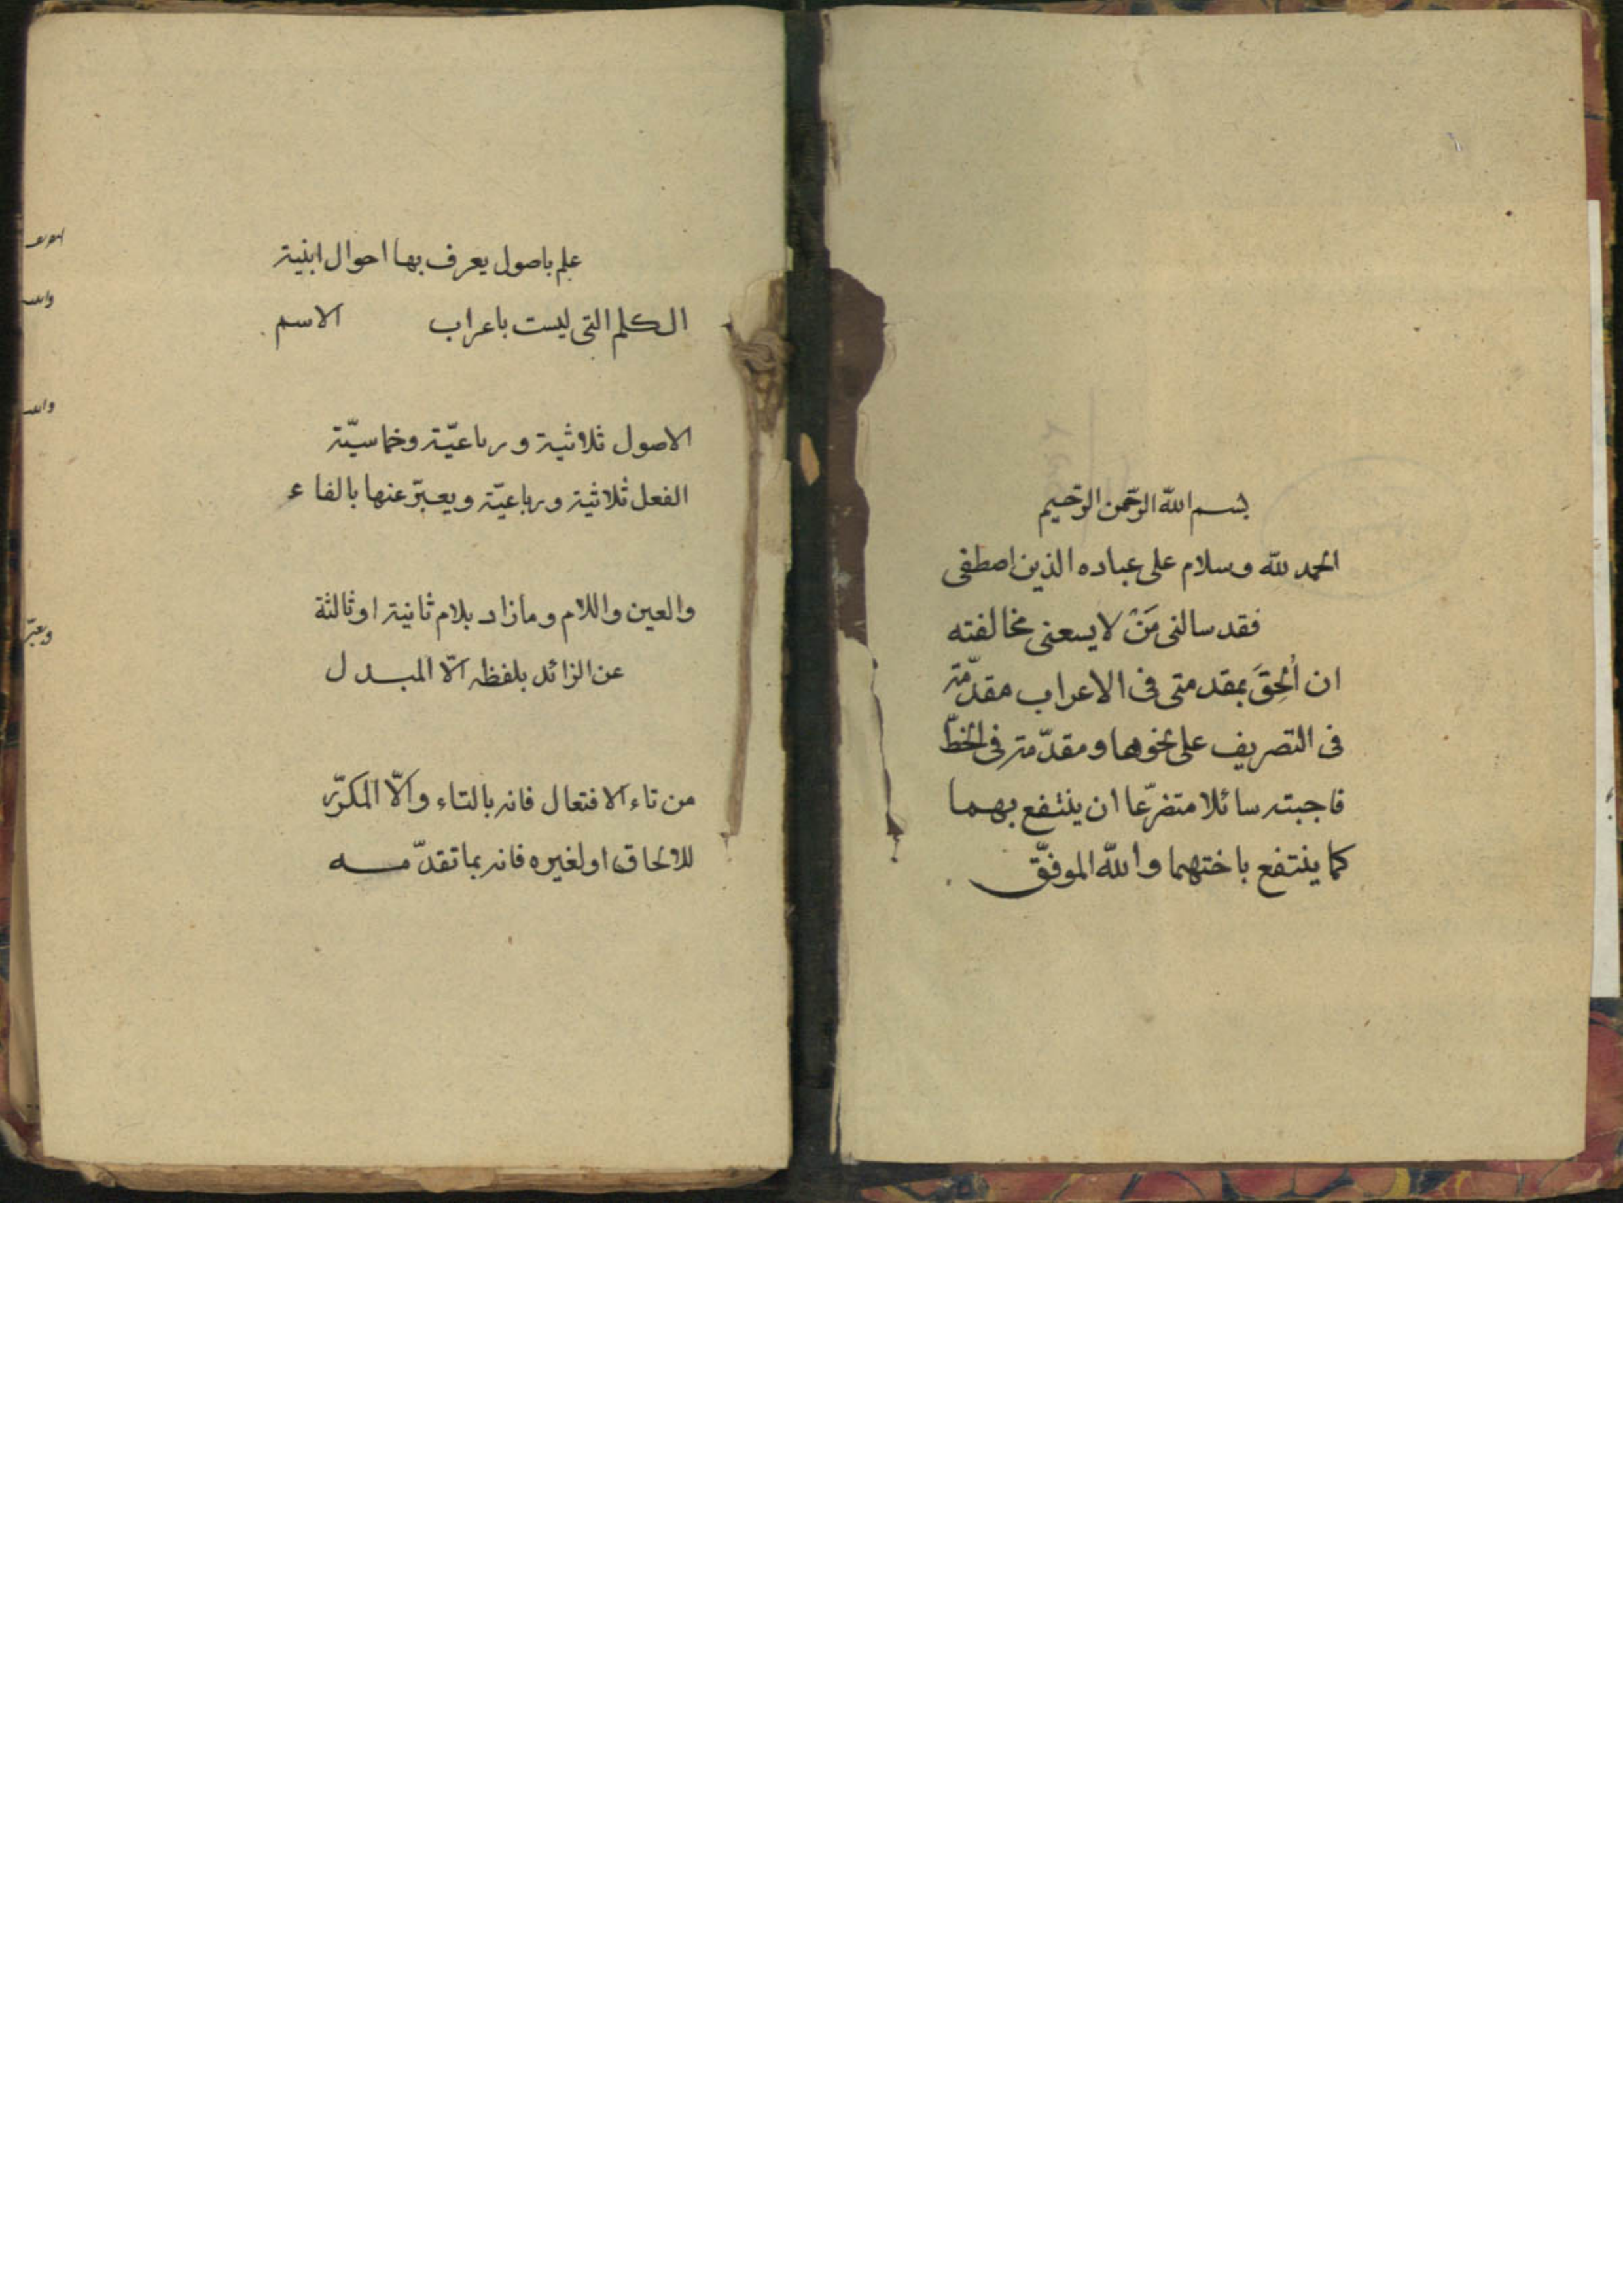 بسم اللّه الرّحمن الرّحيم
الحمد للّه وسلام على عباده الذين اصطفى
فقد سالنى مَنْ لا يسعنى مخالفته
ان اُلحِقَ بمقدمتى فى الاعراب مقدّمة
فى التصريف على نحوها ومقدّمة فى الخطّ
فاجبته سائلا متضرّعا ان ينتفع بهما
كما ينتفع باختهما واللّه الموفّق
علم باصول يعرف بها احوال ابنية
الكلم التى ليست باعراب الاسم
الاصول ثلاثية ورباعيّة وخماسيّة
الفعل ثلاثية ورباعيّة ويعبّر عنها بالفاء
والعين واللام وما زاد بلام ثانية او ثالثة
عن الزائد بلفظه الّا المبدل
من تاء الافتعال فانه بالتاء والّا المكرّر
للالحاق او لغيره فانه بما تقدّمه